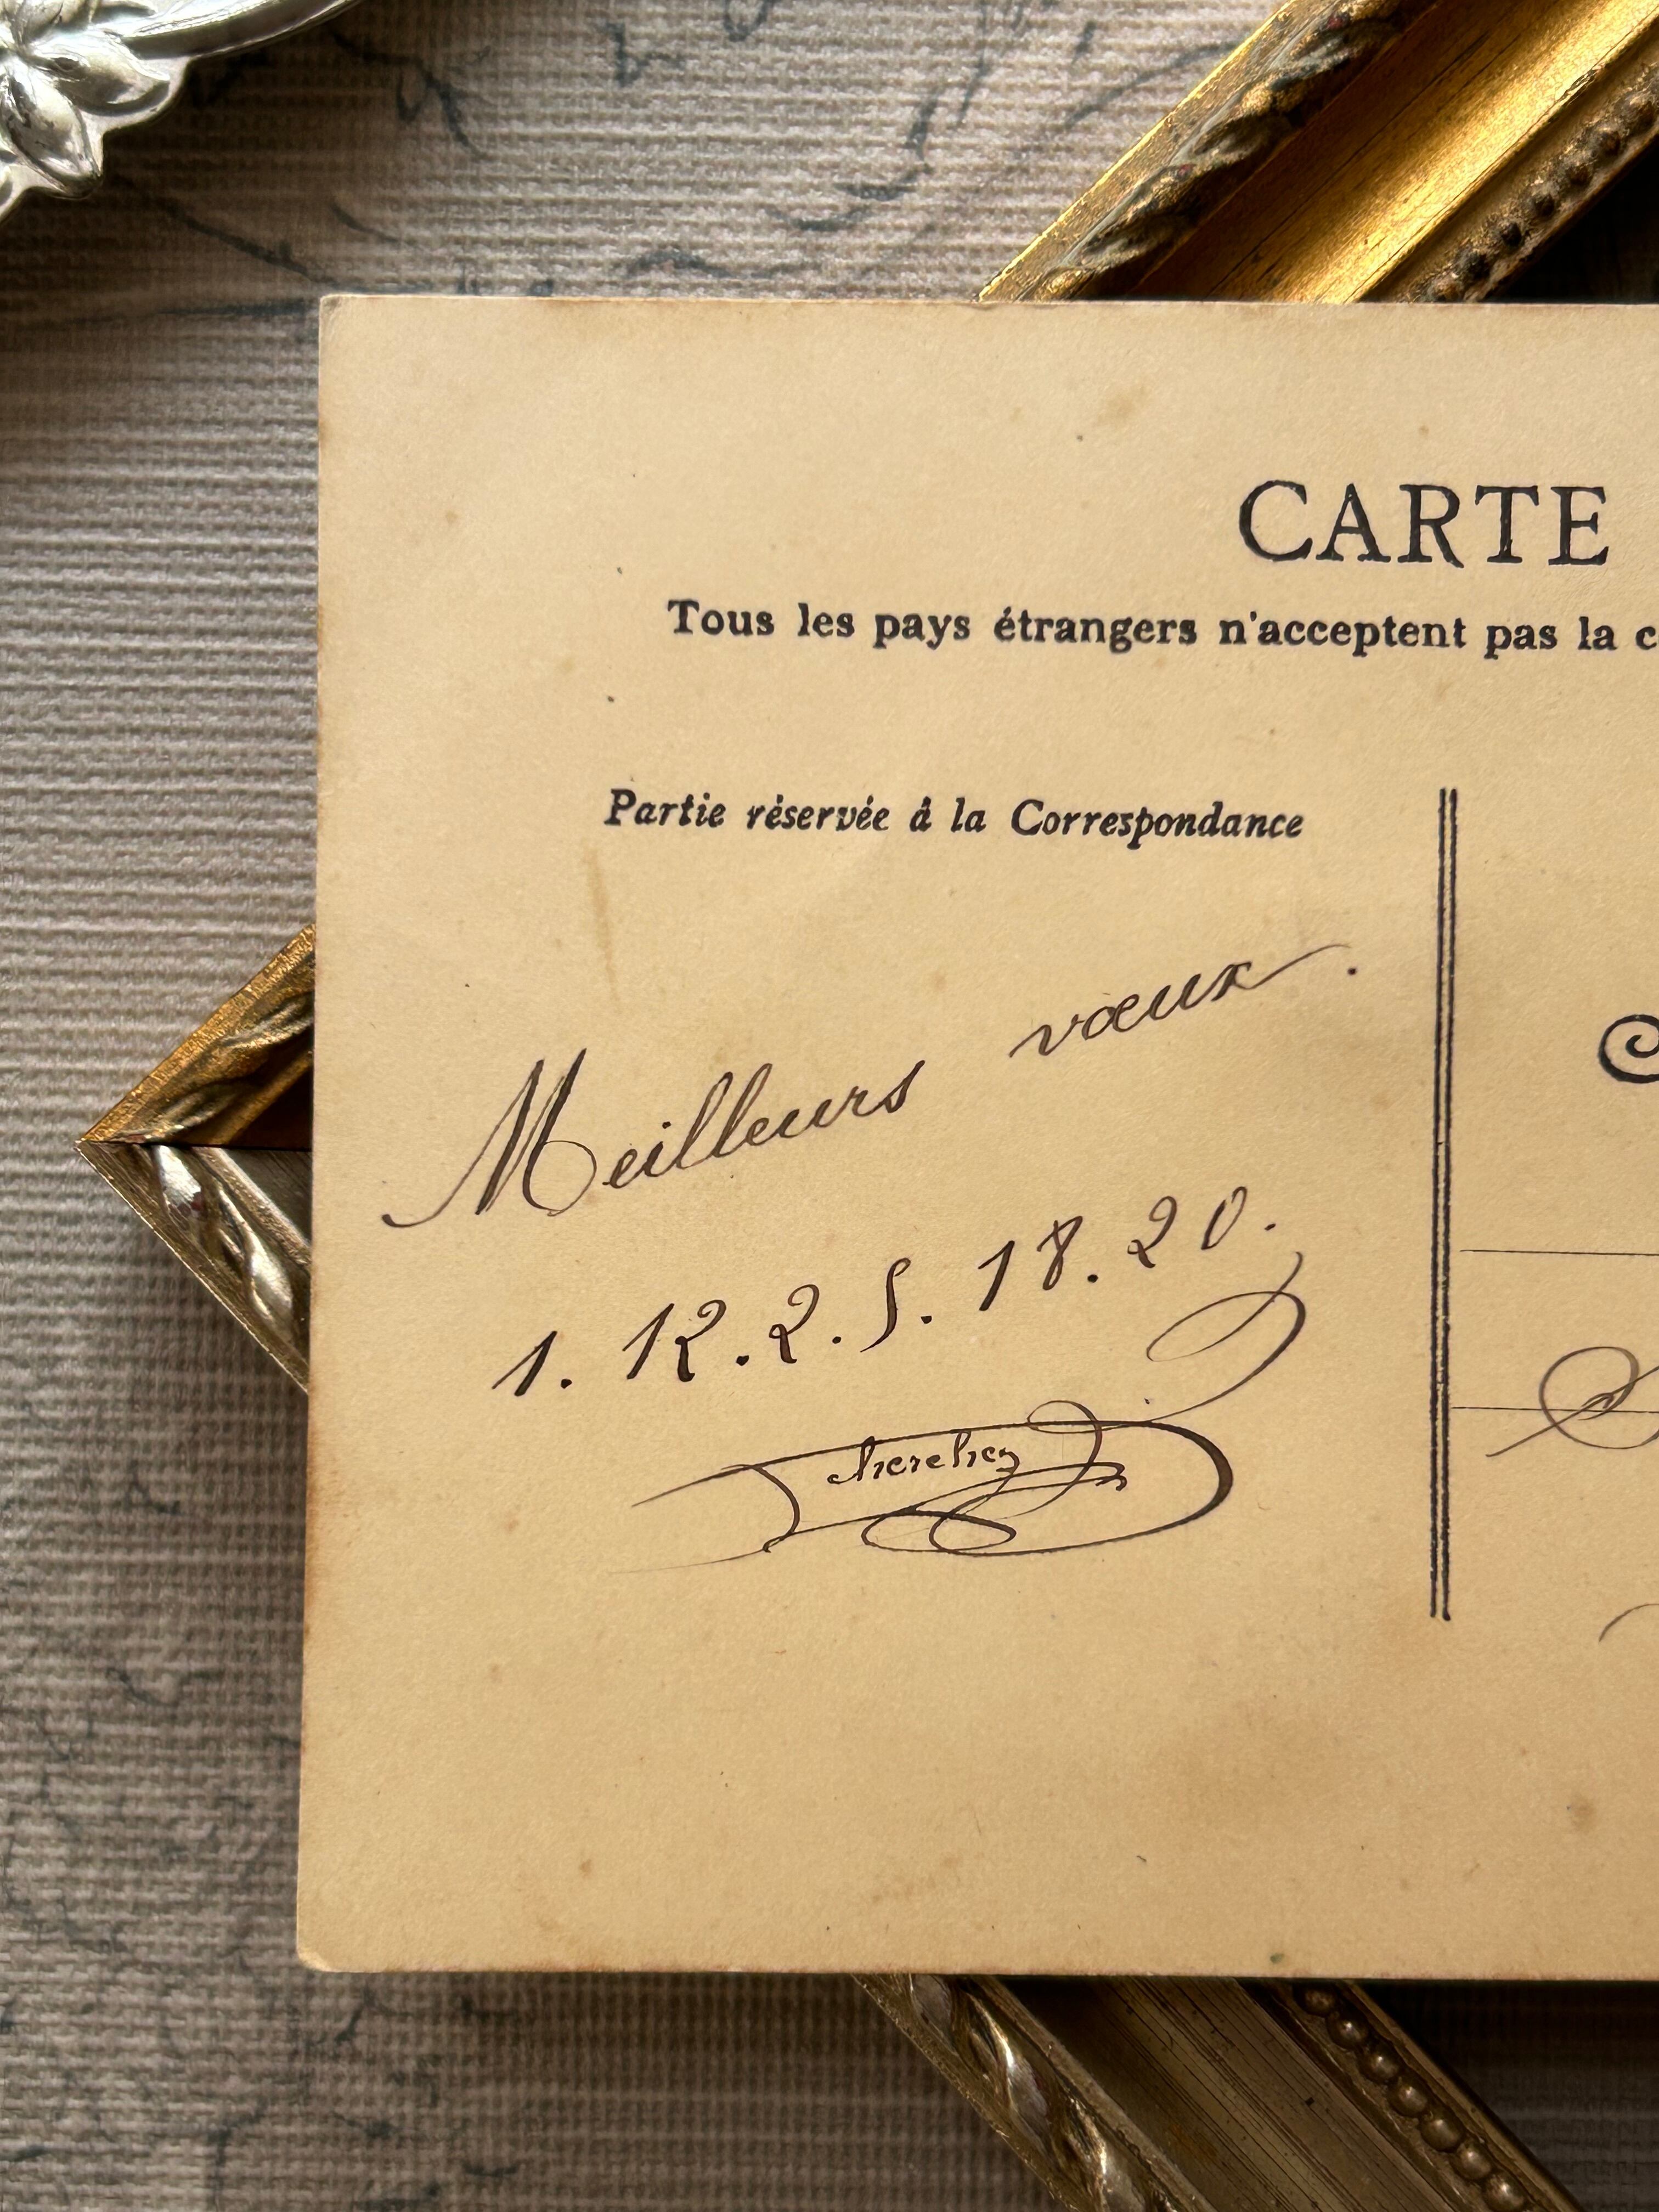 CARTE
Tous les pays étrangers n'acceptent pas la c
Partie réservée à la Correspondance
Meilleurs vœux.
1. 12. 2. 5. 18. 20.
cherchez